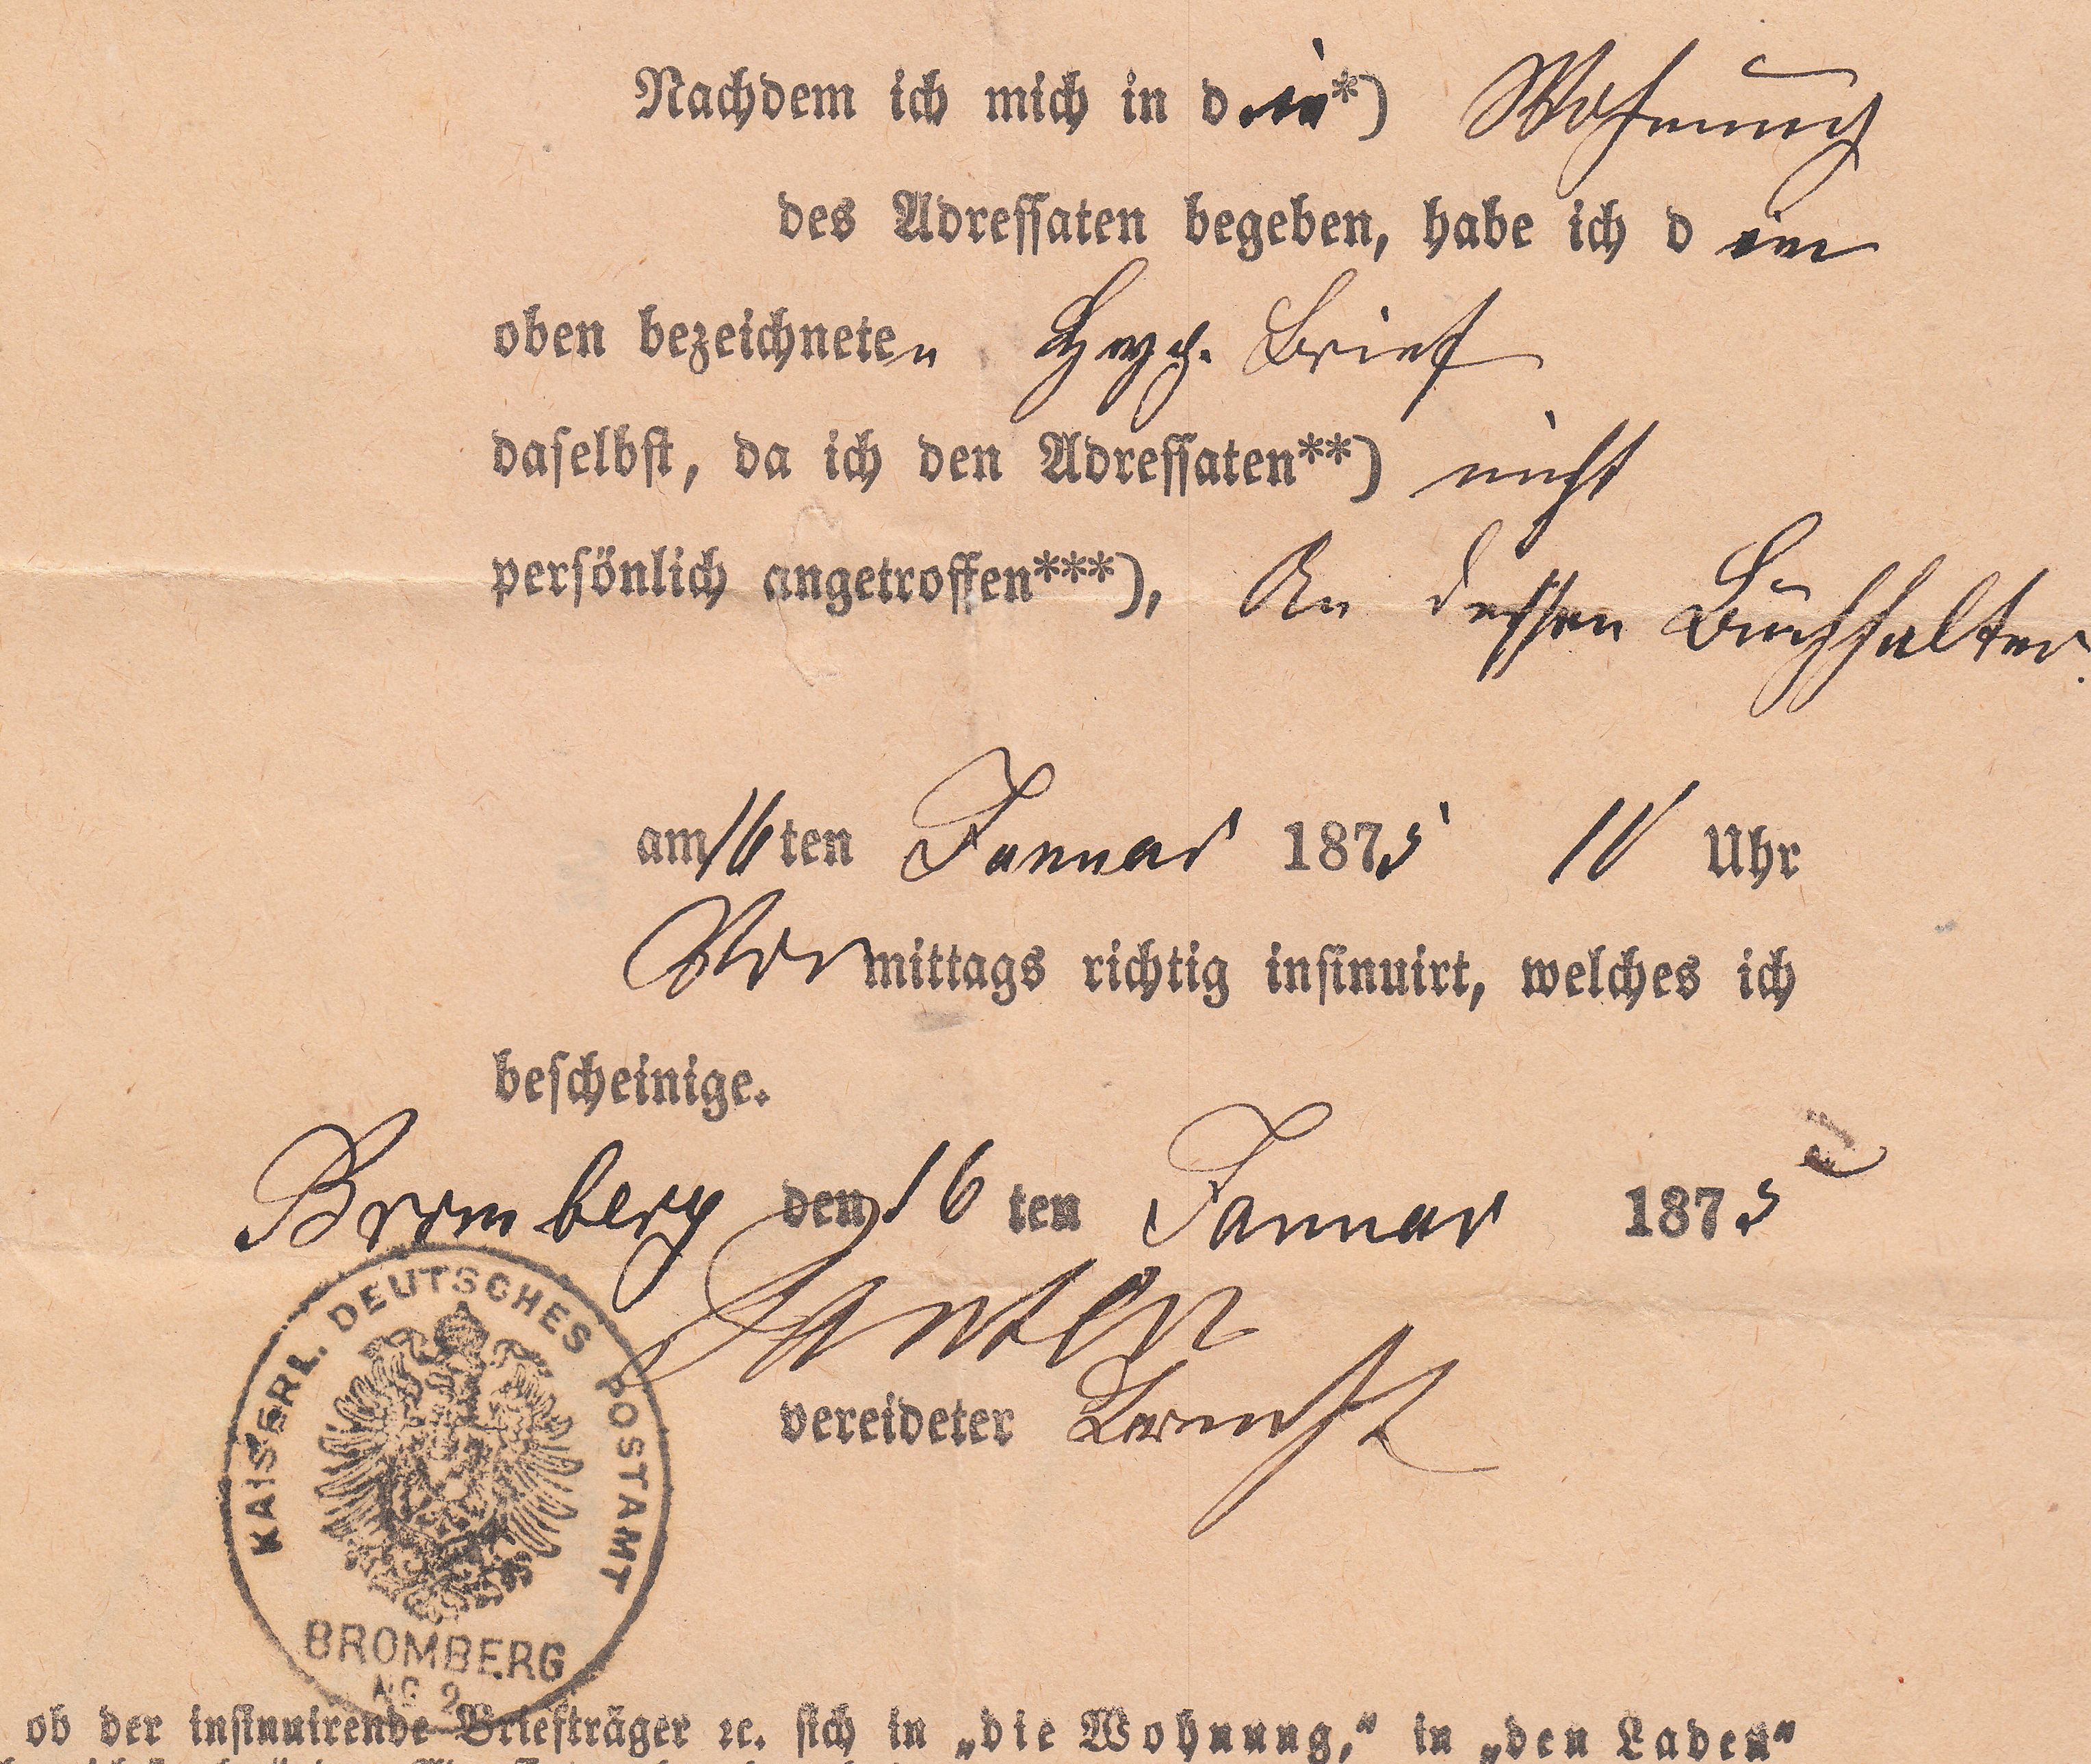 Nachdem ich mich in die*) Wohnung
des Adressaten begeben, habe ich den
oben bezeichneten Hyp. Brief
daselbst, da ich den Adressaten**) nicht
persönlich angetroffen***), An dessen Buchhalter.
am 16ten Januar 1875 10 Uhr
Vormittags richtig insinuirt, welches ich
bescheinige.
Bromberg den 16 ten Januar 1875
vereideter
KAISERL. DEUTSCHES POSTAMT
BROMBERG
ob der insinuirende Briefträger ꝛc. sich in „die Wohnung,“ in „den Laden“